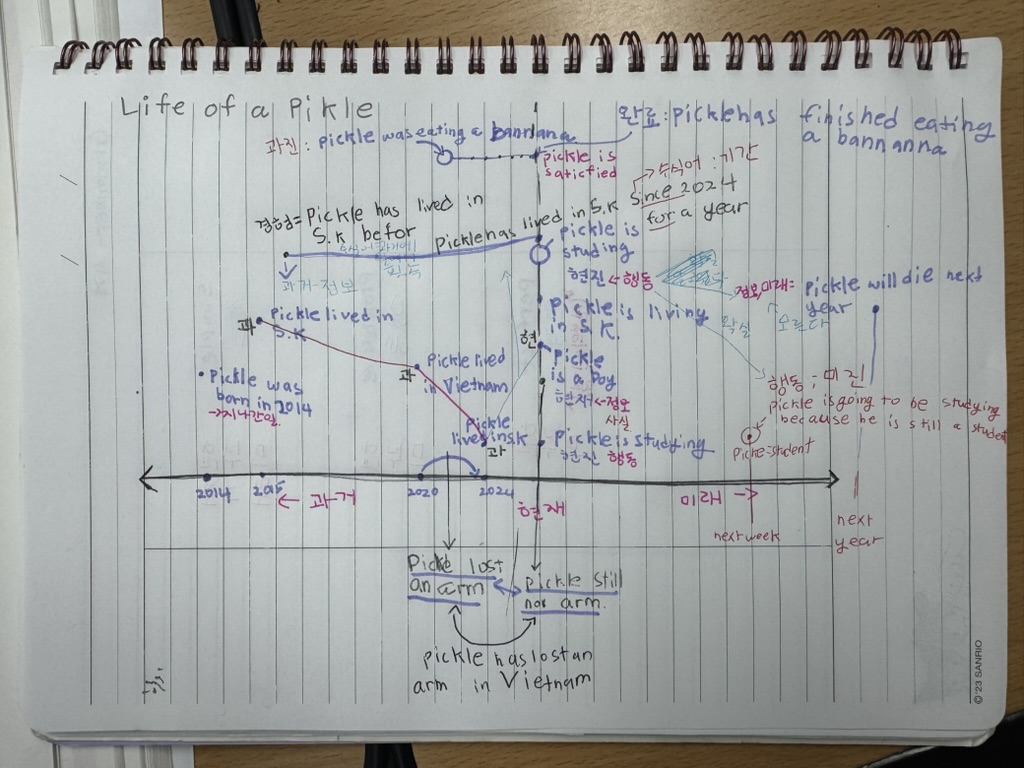 Life of a Pikle
완료: pickle has finished eating
a bannanna
과진: pickle was eating a bannana
pickle is
satisfied
수식어: 기간
since 2024
for a year
경험= Pickle has lived in
S.K befor
pickle has lived in S.K
과거-정보
pickle is
studing
현진 ← 행동
정보,미래= pickle will die next
year
pickle is living
in S.K.
확실
모르다
과 Pickle lived in
S.K
현
Pickle
is a boy
현재 ← 정보
사실
과
Pickle lived
in Vietnam
Pickle was
born in 2014
→지나간일.
행동: 미진
pickle is going to be studying
because he is still a student
pickle
lives in s.k
과
Pickle is studying
현진 행동
Pickle=student
2014
2015
← 과거
2020
2024
현재
미래 →
next week
next
year
Pickle lost
an arm
pickle still
no arm.
pickle has lost an
arm in Vietnam
©'23 SANRIO